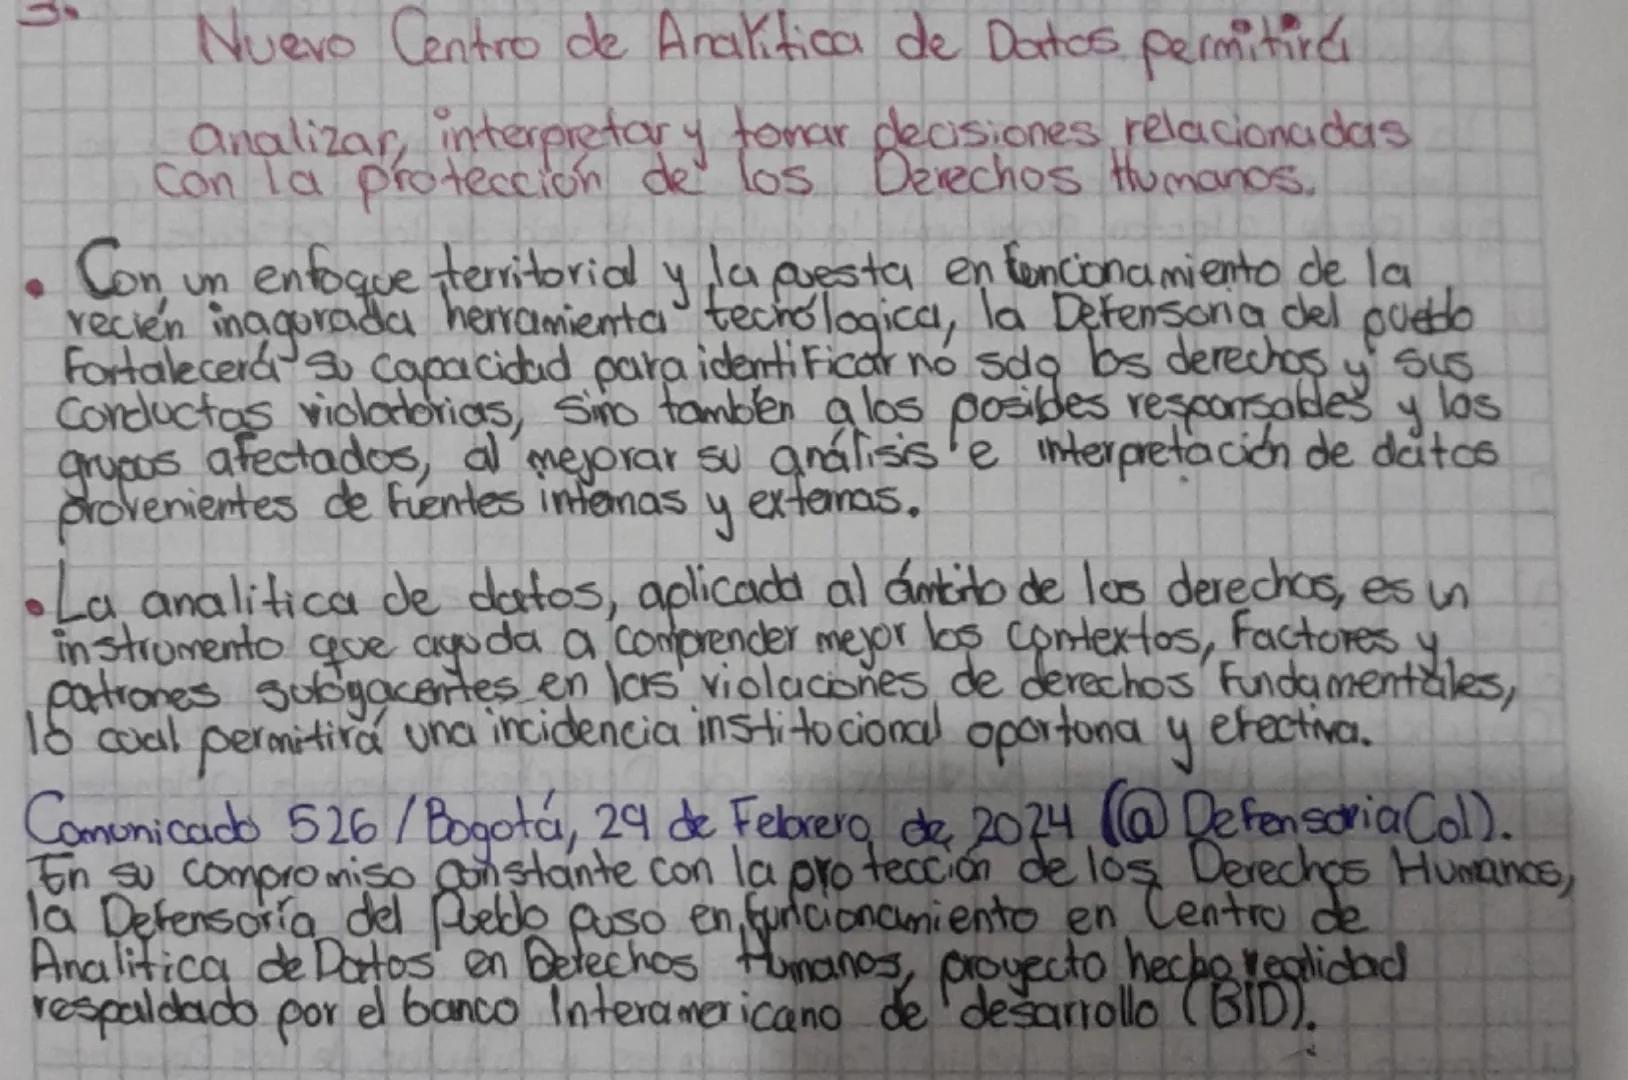 3.
Nuevo Centro de Analitica de Datos permitirá
analizar, interpretar y tomar decisiones relacionadas
con la protección de los Derechos Humanos.
• Con un enfoque territorial y la puesta en funcionamiento de la
recién inagurada herramienta tecnólogica, la Defensoria del pueblo
Fortalecerá su capacidad para identificar no solo los derechos y sus
conductas violatorias, sino también a los posibles responsables y los
grupos afectados, al mejorar su análisis e interpretación de datos
provenientes de fuentes internas y externas.
• La analitica de datos, aplicada al ámbito de los derechos, es un
instrumento que ayuda a comprender mejor los contextos, Factores y
patrones subyacentes en las violaciones de derechos Fundamentales,
lo cual permitirá una incidencia institucional oportuna y efectiva.
Comunicado 526 / Bogotá, 29 de Febrero de 2024 (@DefensoriaCol).
En su compromiso constante con la protección de los Derechos Humanos,
la Defensoría del Pueblo puso en funcionamiento en Centro de
Analitica de Datos en Derechos Humanos, proyecto hecho realidad
respaldado por el banco Interamericano de desarrollo (BID).